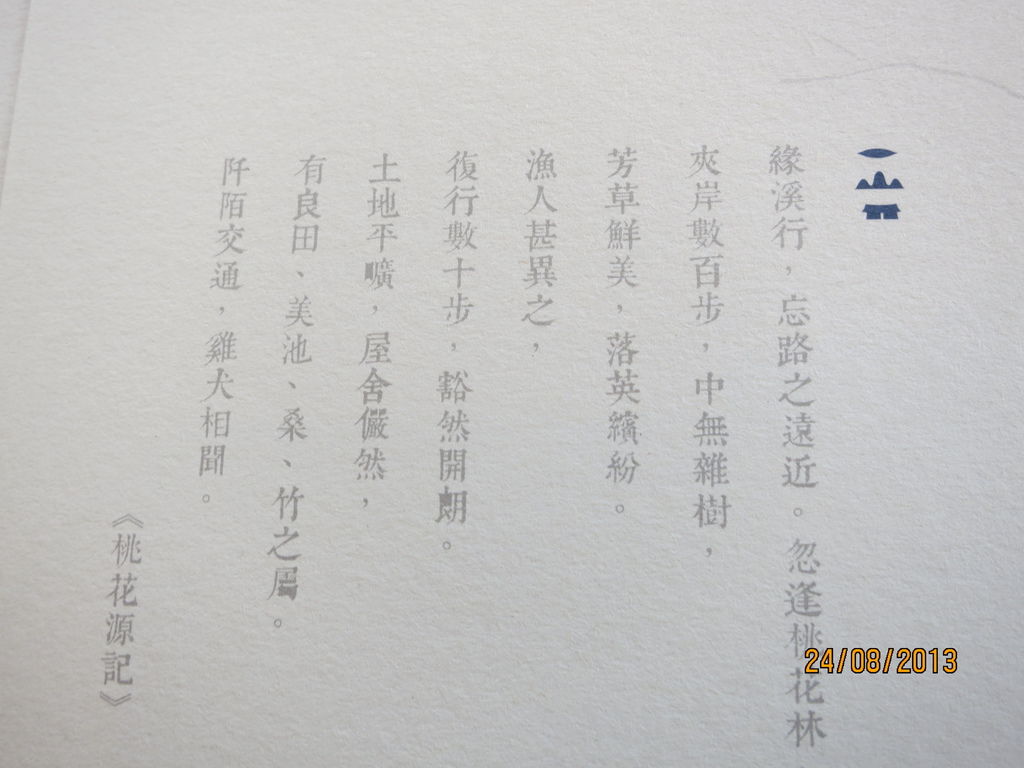 緣溪行，忘路之遠近。忽逢桃花林
夾岸數百步，中無雜樹，
芳草鮮美，落英繽紛。
漁人甚異之，
復行數十步，豁然開朗。
土地平曠，屋舍儼然，
有良田、美池、桑、竹之屬。
阡陌交通，雞犬相聞。
《桃花源記》
24/08/2013